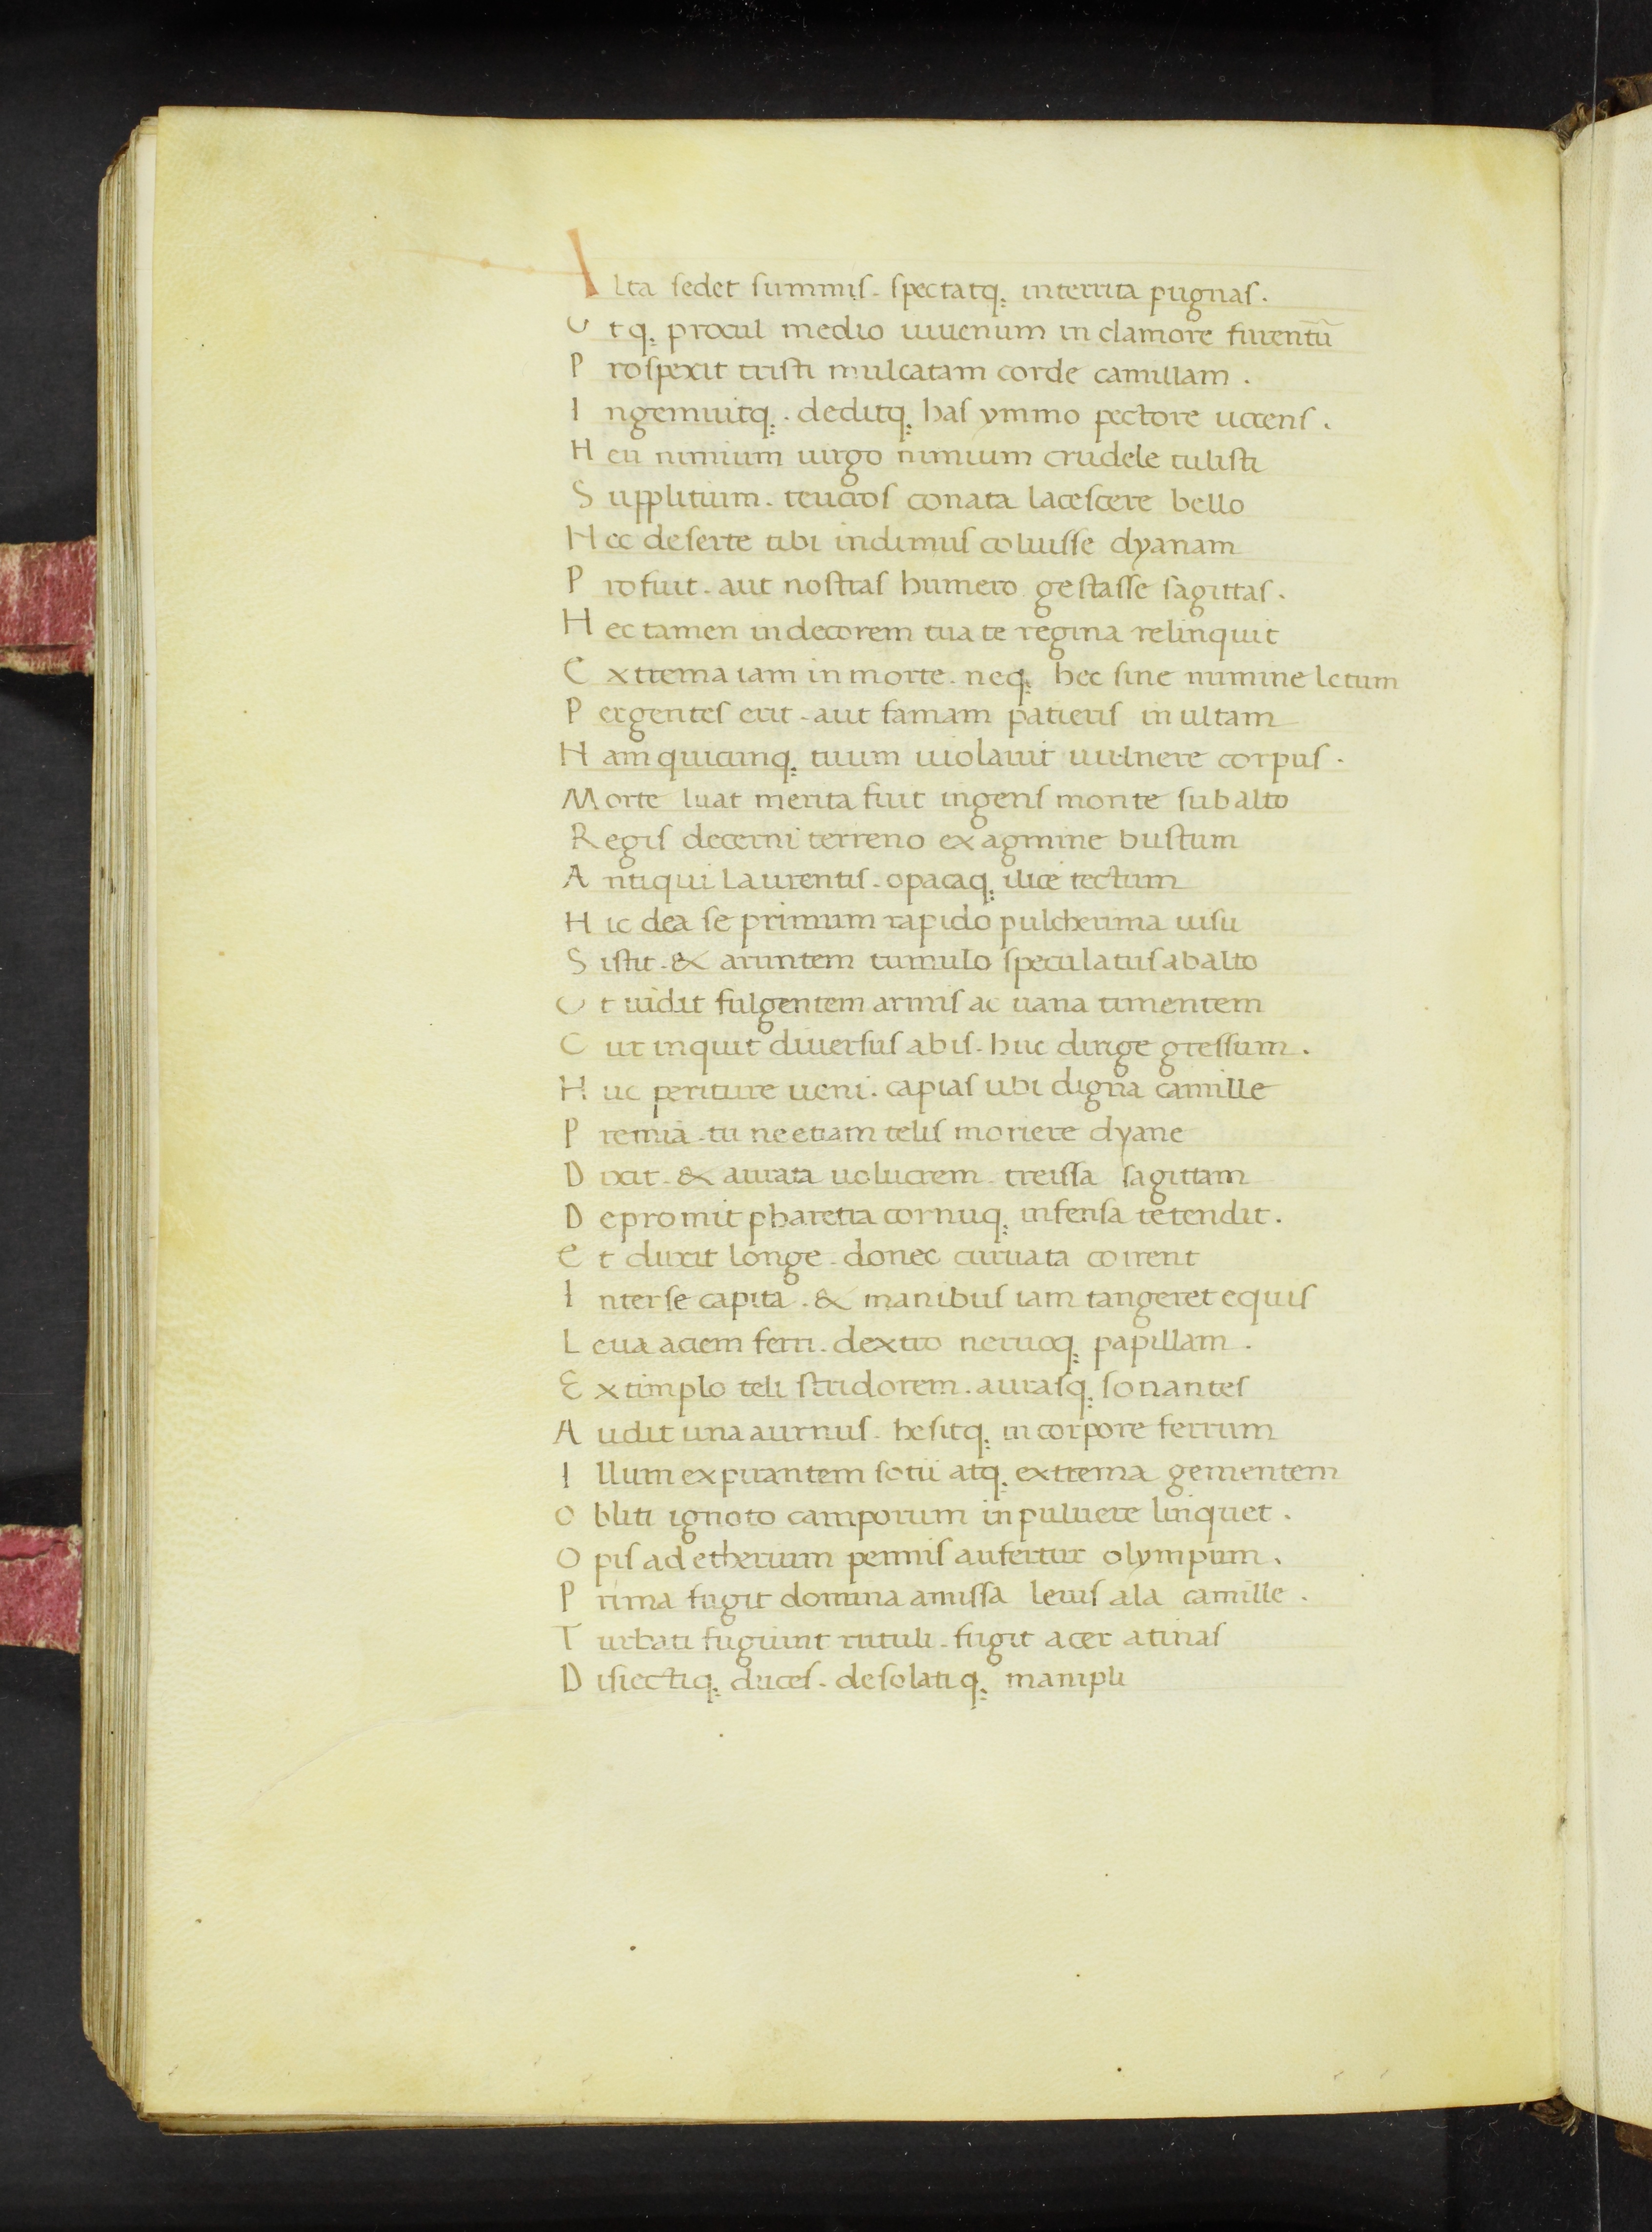 Alta sedet summis. spectatq; interrita pugnas.
Utq; procul medio iuuenum in clamore furentū
Prospexit tristi mulcatam corde camillam.
Ingemuitq;. deditq; has ymmo pectore uocens.
Heu nimium uirgo nimium crudele tulisti
Supplitium. teucros conata lacescere bello
Hec deserte tibi indimus coluisse dyanam
Profuit. aut nostras humero gestasse sagittas.
Hec tamen indecorem tua te regina relinquit
Extrema iam in morte. neq; hec sine numine letum
Pergentes erit. aut famam patieris in ultam
Ham quicunq; tuum uiolauit uulnere corpus.
Morte luat merita fuit ingens monte sub alto
Regis decerni terreno ex agmine bustum
Antiqui Laurentis. opacaq; ilice tectum
Hic dea se primum rapido pulcherima uisu
Sistit. & aruntem tumulo speculatus ab alto
Ut uidit fulgentem armis ac uana timentem
Cur inquit diuersus abis. huc dirige gressum.
Huc periture ueni. capias ubi digna camille
Premia. tu ne etiam telis moriere dyane
Dixit. & aurata uolucrem. treissa sagittam
Depromit pharetra cornuq; infensa tetendit.
Et duxit longe. donec curuata coirent
Inter se capita. & manibus iam tangeret equis
Leua aciem ferri. dextro neruoq; papillam.
Extimplo teli stridorem. aurasq; sonantes
Audit una aurnus. hesitq; in corpore ferrum
Illum expirantem sotii atq; extrema gementem
Obliti ignoto camporum in puluere linquet.
Opis ad etherium pennis aufertur olympum.
Prima fugit domina amissa leuis ala camille.
Turbati fugiunt rutuli. fugit acer atinas
Disiectiq; duces. desolatiq; manipli